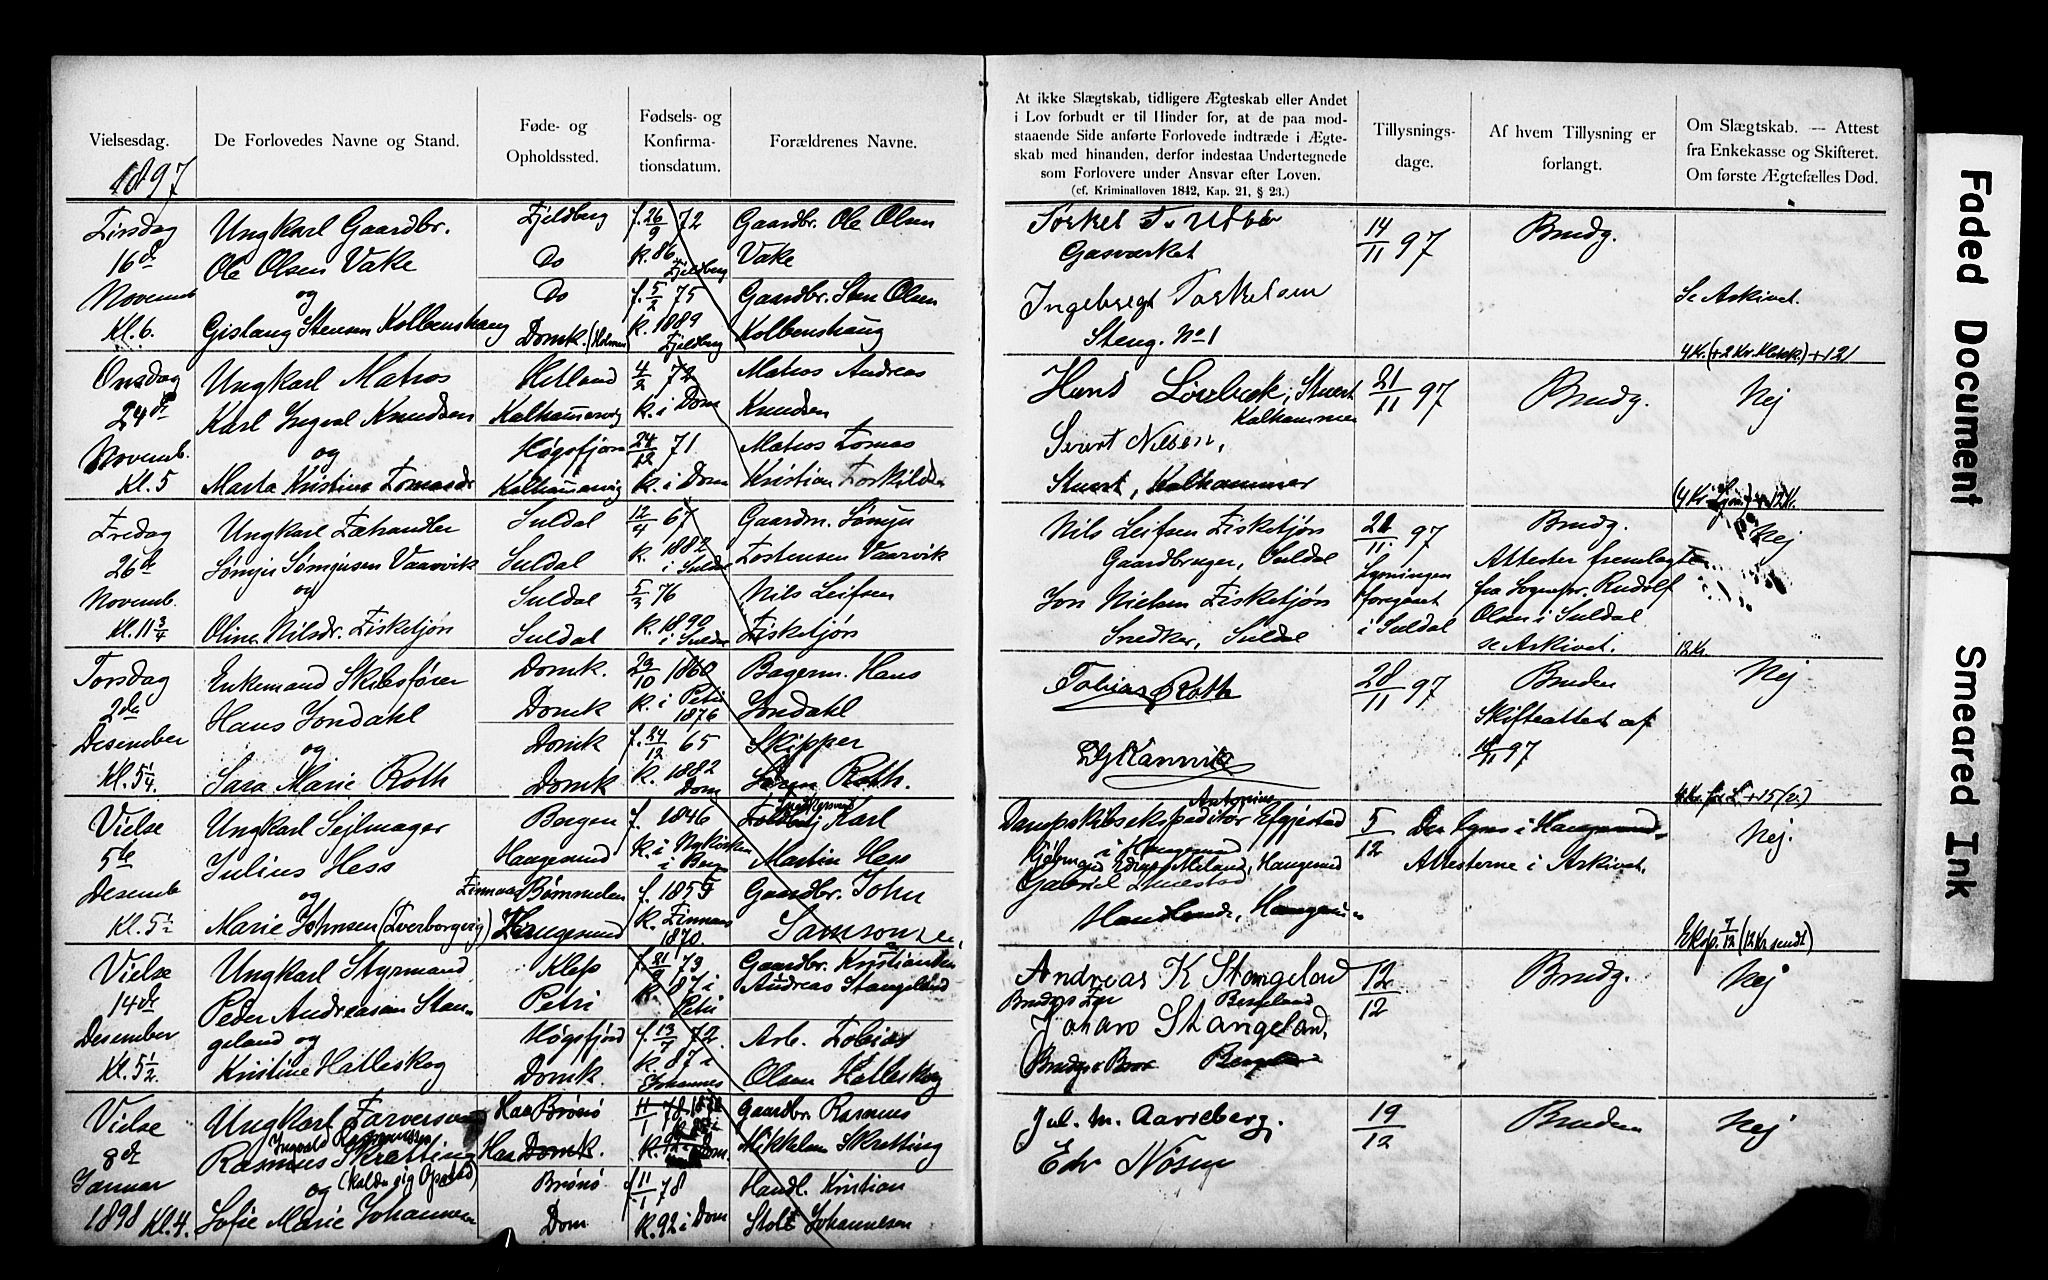 Vielsesdag.
1897
De Forlovedes Navne og Stand.
Føde- og
Opholdssted.
Fødsels- og
Konfirma-
tionsdatum.
Forældrenes Navne.
Tirsdag
16de
Novemb
Kl. 6.
Ungkarl Gaardbr.
Ole Olsen Vake
og
Gislaug Stensen Kolbenshaug
Fjeldberg
Do
Do
Domk. (Holmen
f. 26/9 72
k. 86 Fjeldberg
f. 5/2 75
k. 1889
Fjeldberg
Gaardbr. Ole Olsen
Vake
Gaardbr. Sten Olsen
Kolbenshaug
Onsdag
24de
Novemb.
Kl. 5
Ungkarl Matros
Karl Ingval Knudsen
og
Marta Kristine Tomasdr
Hetland
Kalhammervig
Høgsfjord
Kalhammervig
4/2 72
k. i Dom
24/12 71
k. i Dom
Matros Andreas
Knudsen
Matros Tomas
Kristian Torkildsen
Fredag
26de
Novemb.
Kl. 11 3/4
Ungkarl Fæhandler
Sømju Sømjusen Vaarvik
og
Oline Nilsdr. Fisketjøn
Suldal
Suldal
Suldal
Suldal
12/4 67
k. 1882
i Suldal
5/3 76
k. 1890
i Suldal
Gaardm. Sømju
Tostensen Vaarvik
Nils Leifsen
Fisketjøn
Torsdag
2de
Desember
Kl. 5 1/4
Enkemand Skibsfører
Hans Jondahl
og
Sara Marie Roth
Domk.
Domk
Domk
Domk
23/10 1860
k. i Petri
1876
f. 24/12 65
k. 1882
Dom
Bagerm. Hans
Jondahl
Skipper
Søren Roth.
Vielse
5te
Desemb
Kl. 5 1/2
Ungkarl Sejlmager
Julius Hess
og
Marie Johnsen (Tverborgvig)
Bergen
Haugesund
Finnaas Bømmelen
Haugesund
f. 1846
k. i Nykirken
i Berg
f. 1855
k. Finnaas
1870.
Karl
Martin Hess
Gaardbr. John
Samsonsen
Vielse
14de
Desember
Kl. 5 1/2
Ungkarl Styrmand
Peder Andreasen Stan-
geland og
Kristine Hatleskog
Klep
Petri
Høgsfjord
Domk.
f. 21/9 73
k. 87 i
Petri
f. 13/7 72.
k. 87 i
Johannes
Gaardbr. Kristiansen
Andreas Stangeland
Arb. Tobias
Olsen Hatleskog
Vielse
8de
Januar
1898 Kl. 4.
Ungkarl Farversvend
Ingvald Rasmussen
Rasmus Skretting
og (kalder sig Opstad)
Sofie Marie Johannesen
Haa Brønø
Haa Domk.
Brønø
Dom
11/1 78 1870
k. 92 Dom
f. 11/1 78
k. 92 i Dom
Gaardbr. Rasmus
Mikkelsen Skretting
Handl. Kristian
Stolt Johannesen
At ikke Slægtskab, tidligere Ægteskab eller Andet
i Lov forbudt er til Hinder for, at de paa mod-
staaende Side anførte Forlovede indtræde i Ægte-
skab med hinanden, derfor indestaa Undertegnede
som Forlovere under Ansvar efter Loven.
(cf. Kriminalloven 1842, Kap. 21, § 23.)
Tillysnings-
dage.
Af hvem Tillysning er
forlangt.
Om Slægtskab. — Attest
fra Enkekasse og Skifteret.
Om første Ægtefælles Død.
Torkel T.
Gasværket
Ingebregt Torkelsen
Steng. No 1
14/11 97
Brudg.
Se Arkivet.
4 Kr. (+2 Kr. Klokk.) + 12
Hans Lorebæk, Stuert
Kalhammer
Sivert Nilsen,
Stuert, Kalhammer
21/11 97
Brudg.
Nej
Nils Leifsen Fisketjøn
Gaardbruger, Suldal
Jon Nielsen Fisketjøn
Snedker, Suldal
21/11. 97
Lysningen
foregaaet
i Suldal
Brudg.
Attester fremlagte
fra Sognepr. Rudolf
Olsen i Suldal
se Arkivet.
Nej
12 Kr.
Tobias Roth
Kannik
28/11 97
Bruden
Skifteattest af
97
Nej
4 Kr. for L + 15 (o.)
Antonius
Dampskibsekspeditør Egjestad
i Haugesund
Meland, Haugesund
Gabriel
Handlende, Haugesund
5/12
Der lyses i Haugesund.
Attesterne i Arkivet.
Nej.
Eksp. 7/12 (12 Kr sendt)
Andreas K Stangeland
Brudgs Far Bergeland
Johan Stangeland,
Brudgs Bror Bergeland
12/12
Brudg.
Nej
Jul. M. Aarreberg,
Edv Nösen
19/12
Bruden
Nej
Faded Document
Smeared Ink